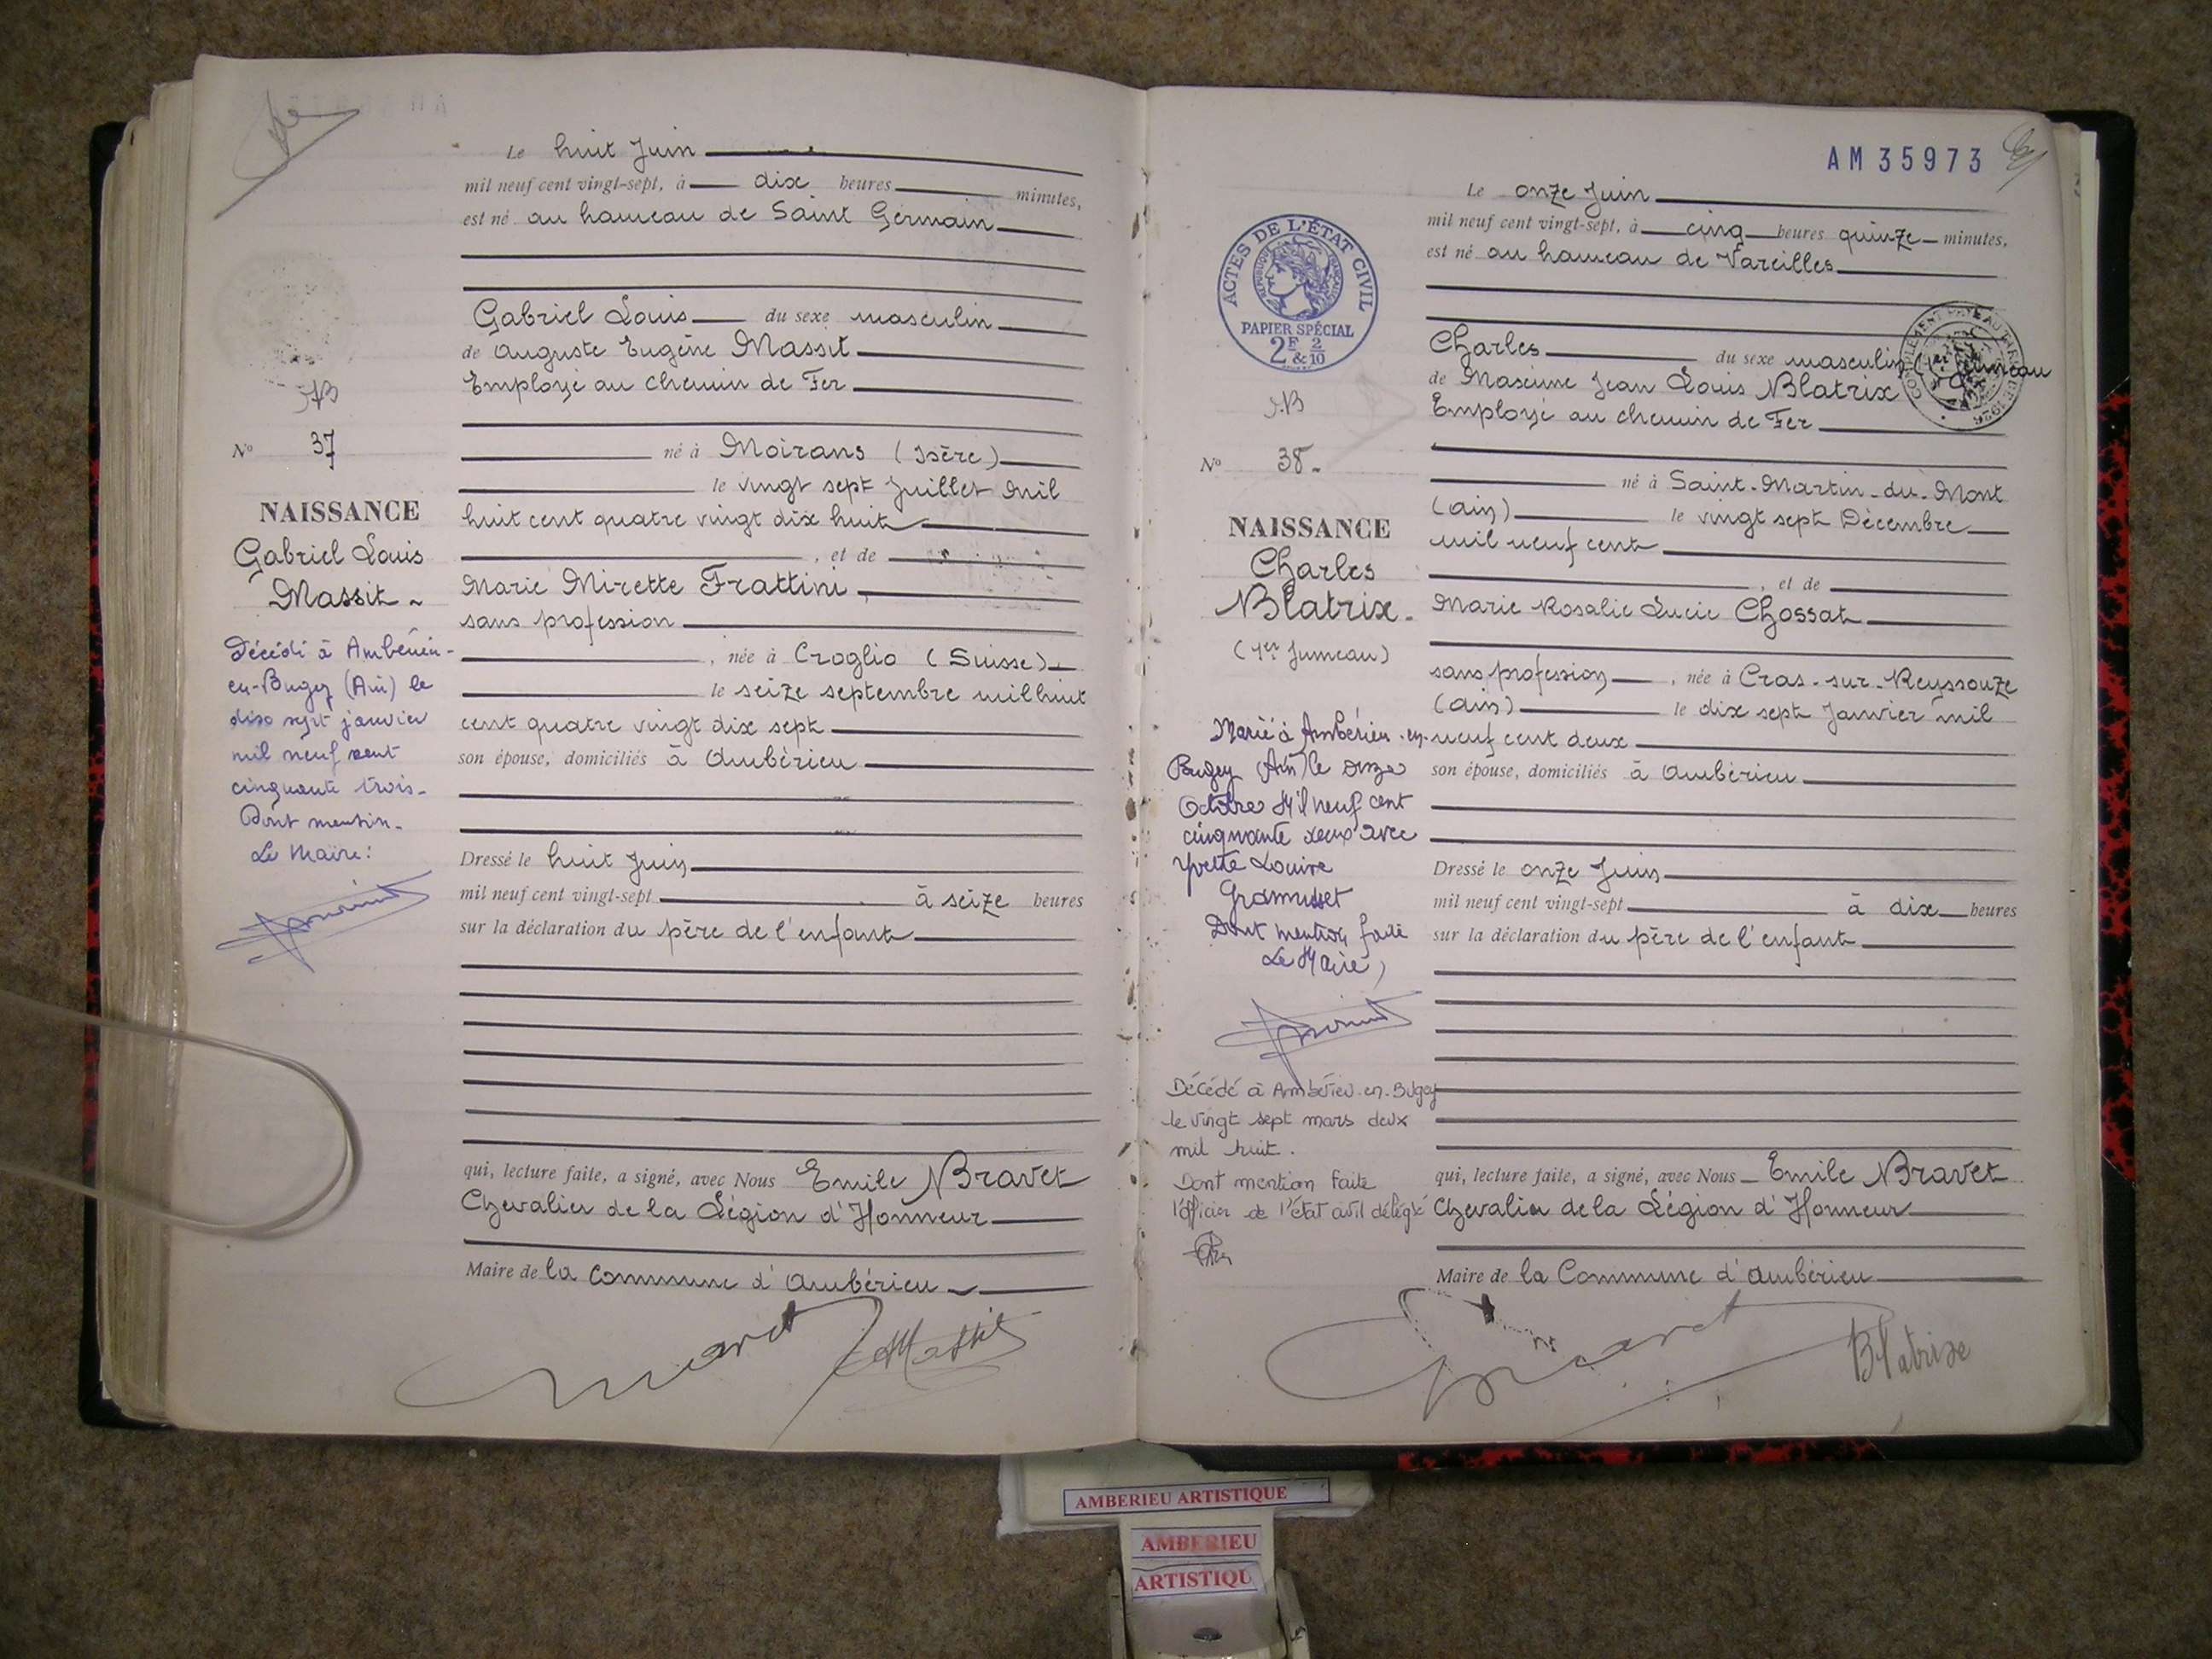 Le huit Juin
mil neuf cent vingt-sept, à dix heures minutes,
est né au hameau de Saint Germain
Gabriel Louis du sexe masculin
de Auguste Eugène Massit
Employé au chemin de Fer
né à Moirans (Isère)
le vingt sept Juillet mil
huit cent quatre vingt dix huit
, et de
Marie Mirette Frattini
sans profession
, née à Croglio (Suisse)
le seize septembre mil huit
cent quatre vingt dix sept
son épouse, domiciliés à Ambérieu
Dressé le huit Juin
mil neuf cent vingt-sept à seize heures
sur la déclaration du père de l'enfant
qui, lecture faite, a signé, avec Nous Emile Bravet
Chevalier de la Légion d'Honneur
Maire de la Commune d'Ambérieu
Massit
No 37
NAISSANCE
Gabriel Louis
Massit
Décédé à Ambérieu-
en-Bugey (Ain) le
dix sept janvier
mil neuf cent
cinquante trois.
Dont mention.
Le Maire:
AM35973
Le onze Juin
mil neuf cent vingt-sept, à cinq heures quinze minutes,
est né au hameau de Vareilles
Charles du sexe masculin (1er Jumeau
de Maxime Jean Louis Blatrix
Employé au chemin de Fer
né à Saint-Martin-du-Mont
(Ain) le vingt sept Décembre
mil neuf cent
, et de
Marie Rosalie Lucie Chossat
sans profession, née à Cras-sur-Reyssouze
(Ain) le dix sept Janvier mil
neuf cent deux
son épouse, domiciliés à Ambérieu
Dressé le onze Juin
mil neuf cent vingt-sept à dix heures
sur la déclaration du père de l'enfant
qui, lecture faite, a signé, avec Nous Emile Bravet
Chevalier de la Légion d'Honneur
Maire de la Commune d'Ambérieu
Blatrix
ACTES DE L'ÉTAT CIVIL
RÉPUBLIQUE FRANÇAISE
PAPIER SPÉCIAL
2F & 2/10
J.B
No 38
NAISSANCE
Charles
Blatrix
(1er Jumeau)
Marié à Ambérieu-en-
Bugey (Ain) le onze
Octobre Mil neuf cent
cinquante deux avec
Yvette Louise
Gramusset
Dont mention faite
Le Maire,
Décédé à Ambérieu-en-Bugey
le vingt sept mars deux
mil huit.
Dont mention faite
l'officier de l'état civil délégué
AMBERIEU ARTISTIQUE
AMBERIEU
ARTISTIQU